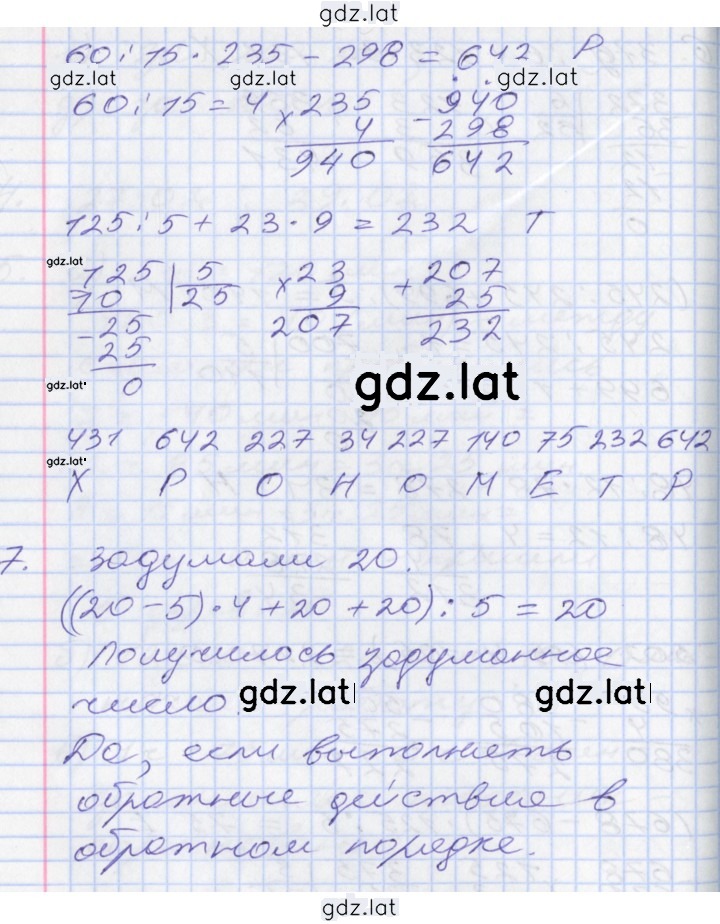 gdz.lat
60 : 15 · 235 - 298 = 642 Р
gdz.lat gdz.lat gdz.lat
60 : 15 = 4 × 235 - 940
4 298
940 642
125 : 5 + 23 · 9 = 232 Т
gdz.lat
125 | 5 × 23 + 207
10 25 9 25
- 25 207 232
25
gdz.lat 0 gdz.lat
431 642 227 34 227 140 75 232 642
gdz.lat
Х Р О Н О М Е Т Р
7. Задумали 20.
((20 - 5) · 4 + 20 + 20) : 5 = 20
Получилось задуманное
число. gdz.lat gdz.lat
Да, если выполнять
обратные действия в
обратном порядке.
gdz.lat